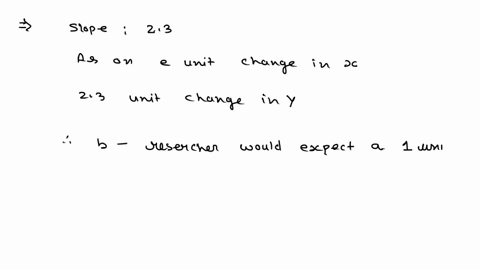 ⇒ Slope : 2.3
As on e unit change in x
2.3 unit change in Y
∴ b - resercher would expect a 1 uni